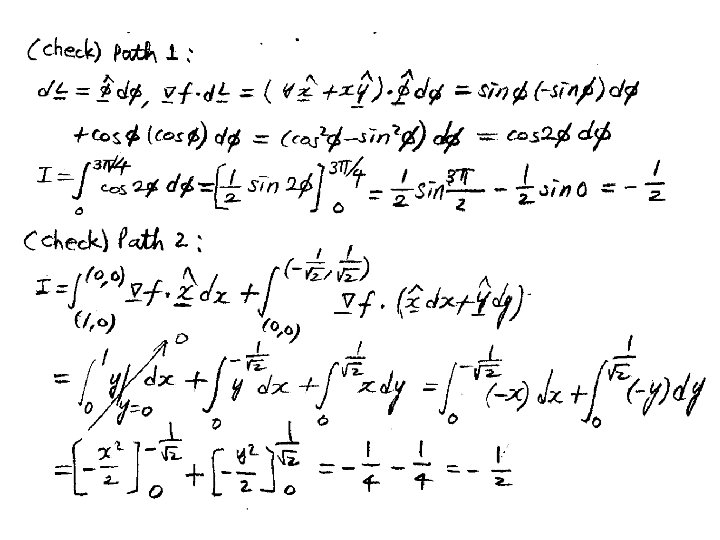 (check) Path 1:
dL = φ̂ dφ, ∇f·dL = (y x̂ + x ŷ)·φ̂ dφ = sinφ (-sinφ) dφ
+cosφ (cosφ) dφ = (cos²φ-sin²φ) dφ = cos2φ dφ
I = ∫₀^{3π/4} cos 2φ dφ = [1/2 sin 2φ]₀^{3π/4} = 1/2 sin 3π/2 - 1/2 sin 0 = -1/2
(check) Path 2:
I = ∫_{(1,0)}^{(0,0)} ∇f · x̂ dx + ∫_{(0,0)}^{(-1/√2, 1/√2)} ∇f · (x̂ dx + ŷ dy)
= ∫₀^1 y|_{y=0} dx → 0 + ∫₀^{-1/√2} y dx + ∫₀^{1/√2} x dy = ∫₀^{-1/√2} (-x) dx + ∫₀^{1/√2} (-y) dy
= [-x²/2]₀^{-1/√2} + [-y²/2]₀^{1/√2} = -1/4 - 1/4 = -1/2